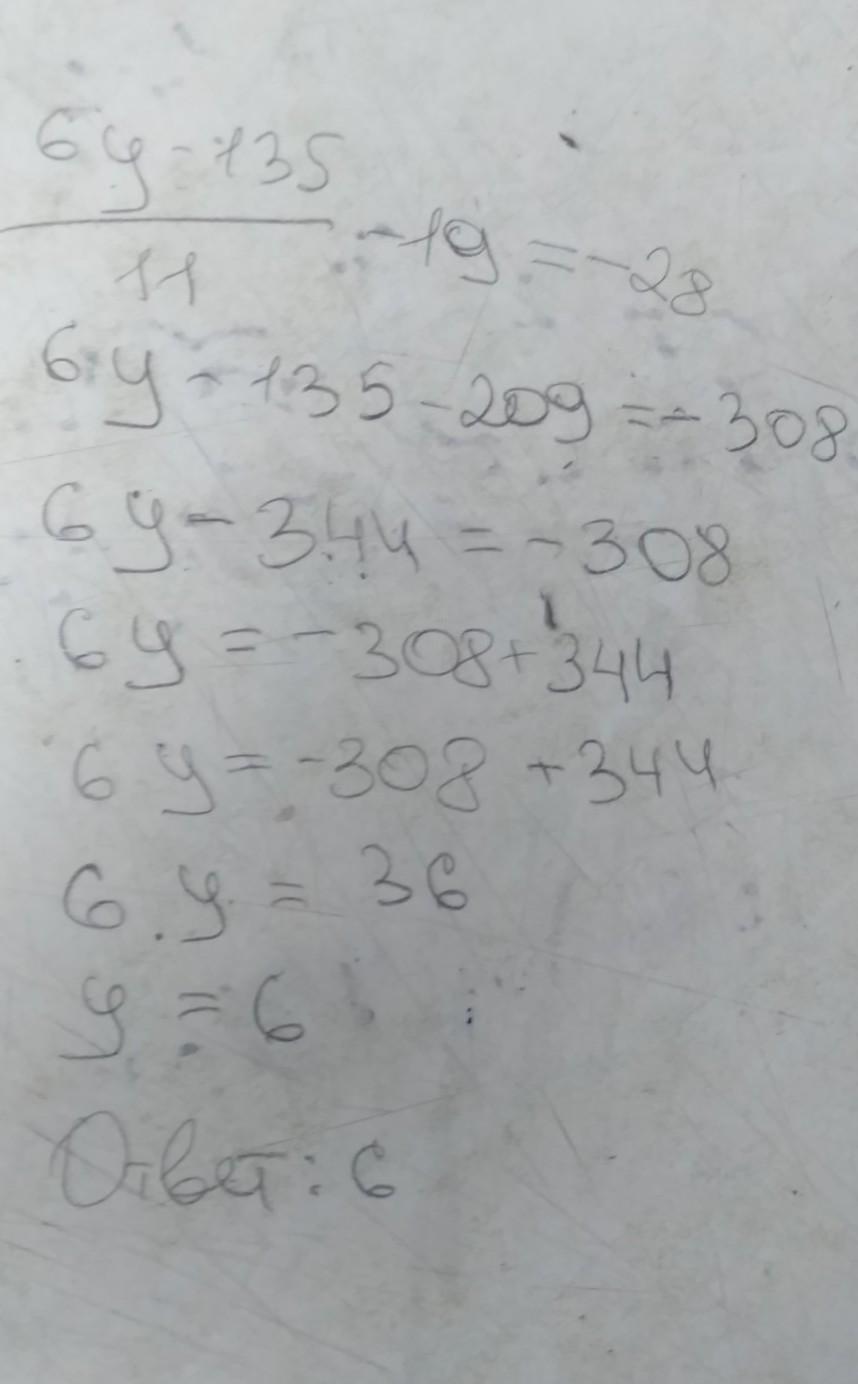 6y-135
11
-19=-28
6y-135-209=-308
6y-344=-308
6y=-308+344
6y=-308+344
6.y=36
y=6
Ответ:6